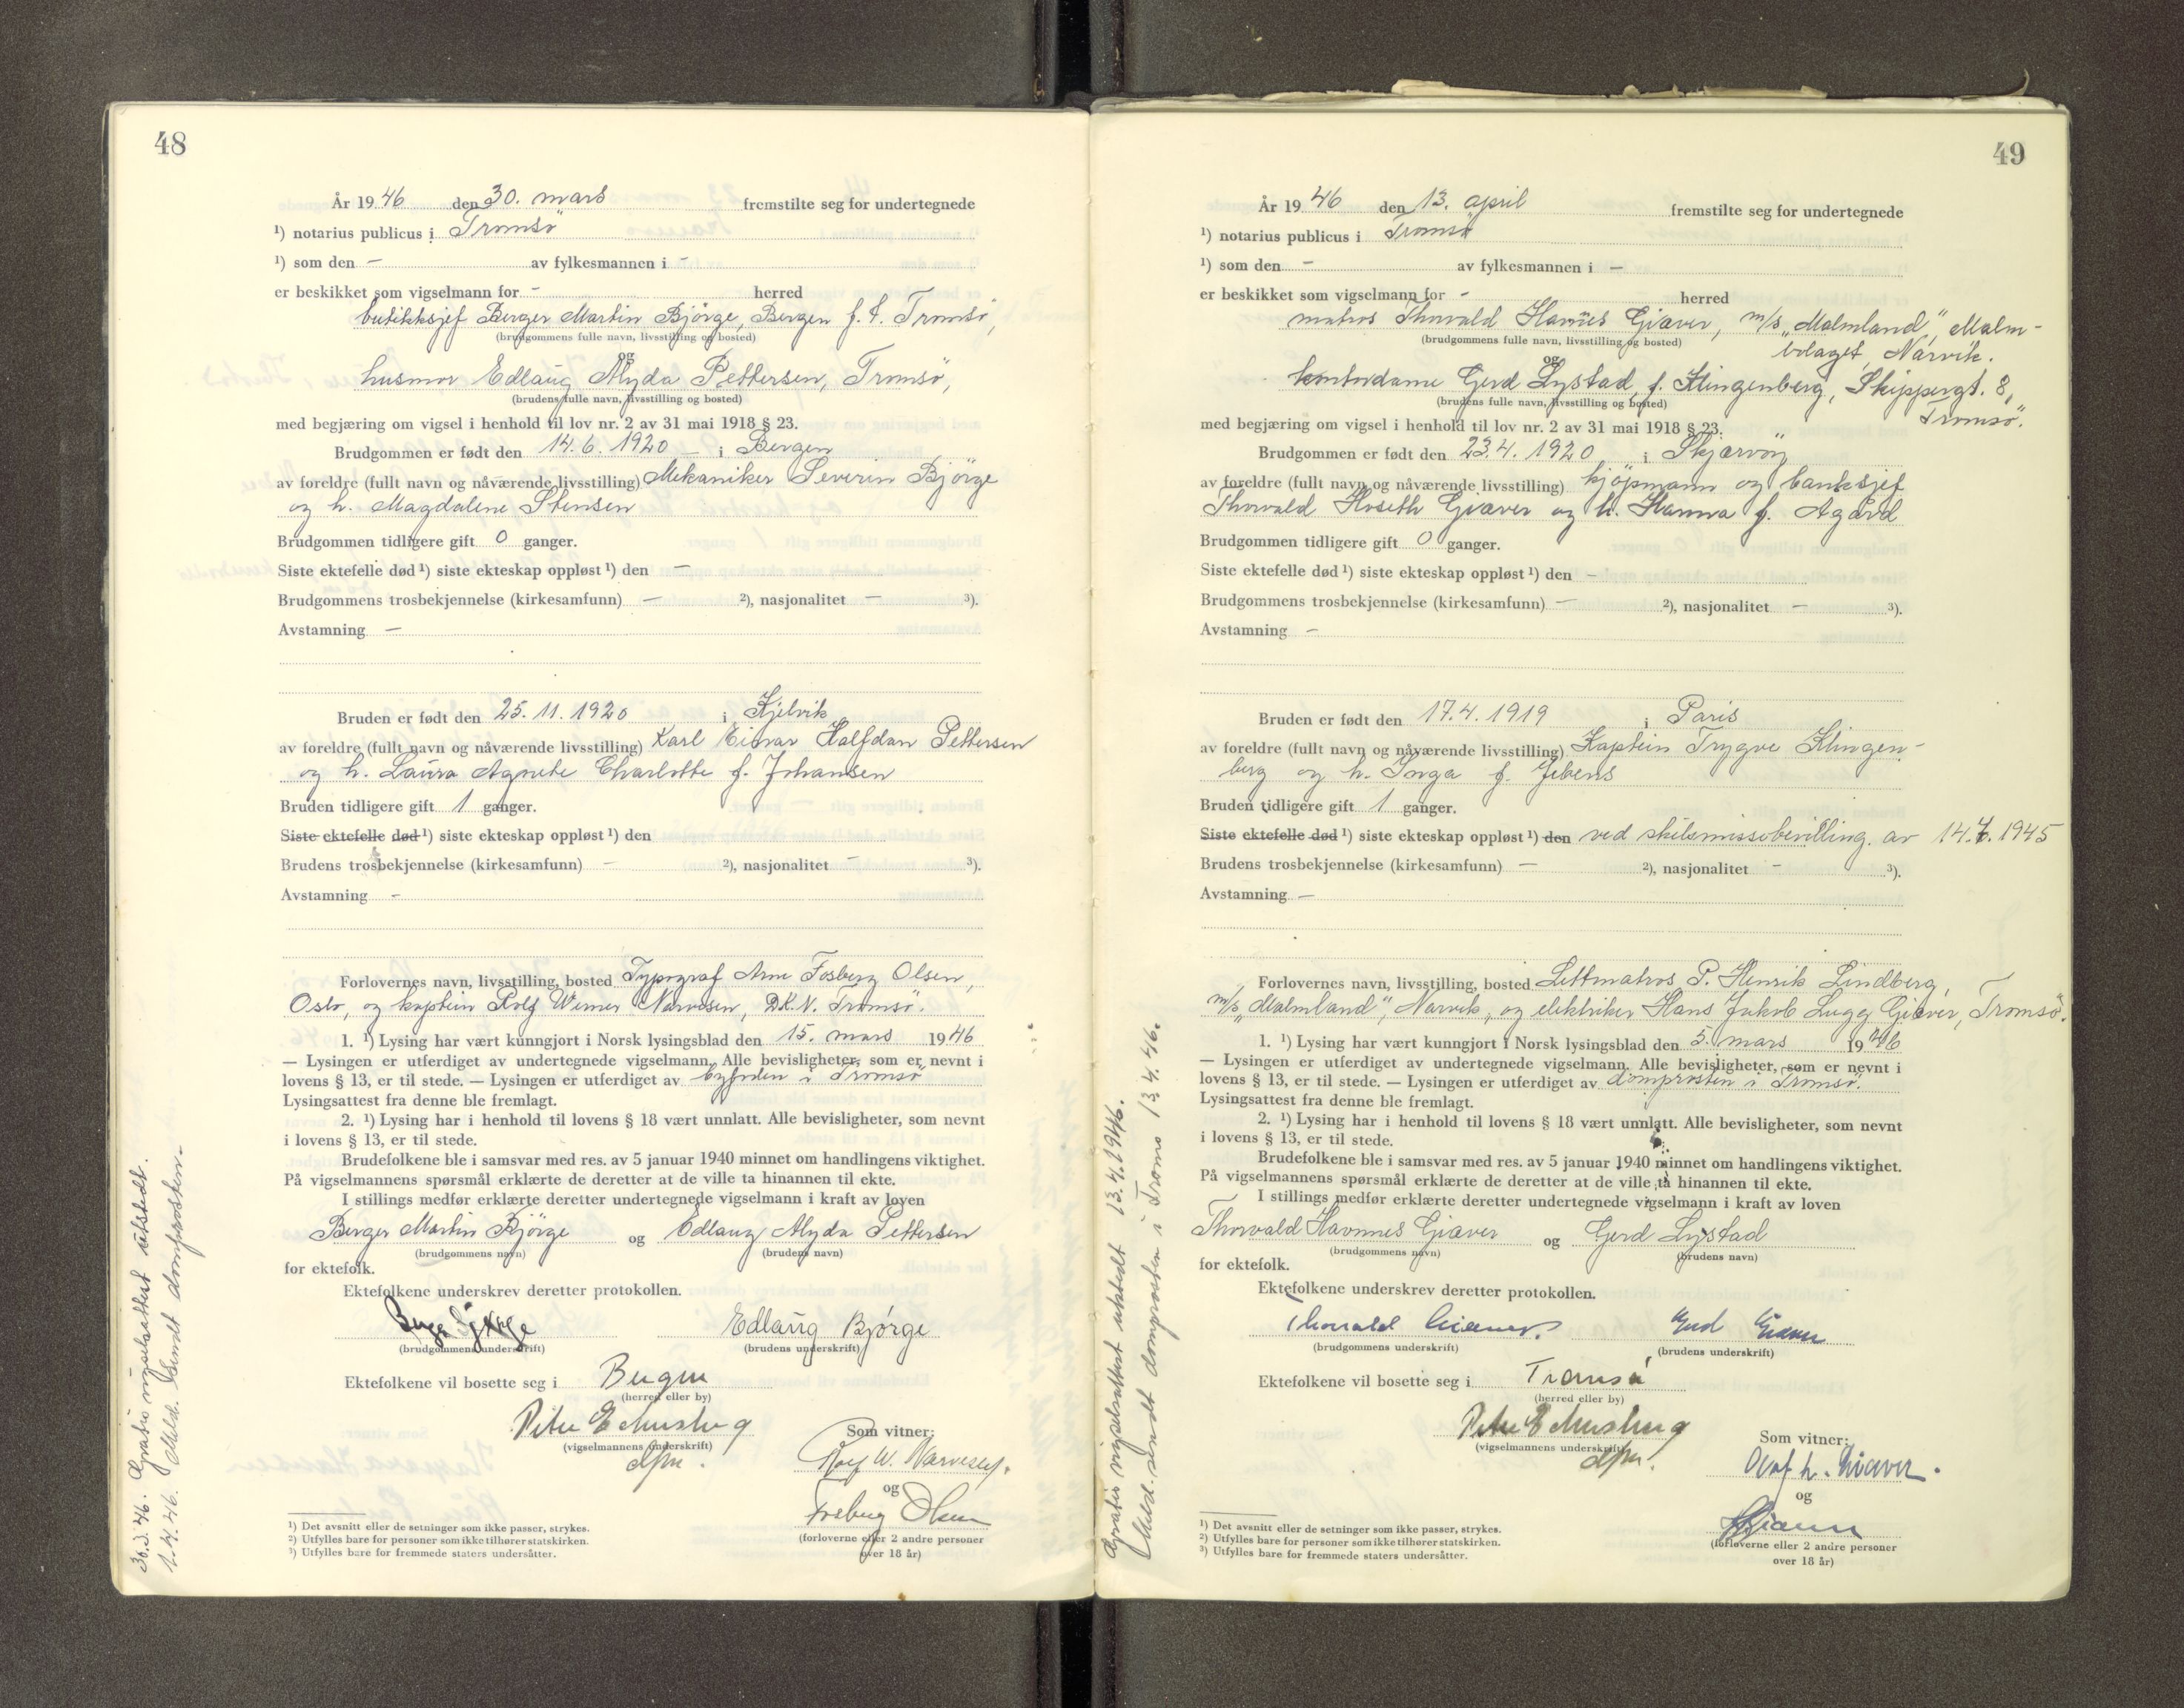 48
År 1946 den 30. mars fremstilte seg for undertegnede
¹) notarius publicus i Tromsö
¹) som den – av fylkesmannen i –
er beskikket som vigselmann for – herred
butikksjef Berger Martin Bjørge, Bergen f. t. Tromsö,
(brudgommens fulle navn, livsstilling og bosted)
og
husmor Edlaug Alyda Pettersen, Tromsö,
(brudens fulle navn, livsstilling og bosted)
med begjæring om vigsel i henhold til lov nr. 2 av 31 mai 1918 § 23.
Brudgommen er født den 14. 6. 1920 i Bergen
av foreldre (fullt navn og nåværende livsstilling) Mekaniker Severin Bjørge
og h. Magdalene Stensen
Brudgommen tidligere gift 0 ganger.
Siste ektefelle død ¹) siste ekteskap oppløst ¹) den –
Brudgommens trosbekjennelse (kirkesamfunn) – ²), nasjonalitet – ³).
Avstamning –
Bruden er født den 25. 11. 1920 i Kjelvik
av foreldre (fullt navn og nåværende livsstilling) Karl Einar Halfdan Pettersen
og h. Laura Agnete Charlotte f. Johansen
Bruden tidligere gift 1 ganger.
Siste ektefelle død ¹) siste ekteskap oppløst ¹) den
Brudens trosbekjennelse (kirkesamfunn) – ²), nasjonalitet – ³).
Avstamning –
Forlovernes navn, livsstilling, bosted Typograf Arne Fosberg Olsen,
Oslo, og kaptein Rolf Werner Narvesen, D.K.N. Tromsö.
1. ¹) Lysing har vært kunngjort i Norsk lysingsblad den 15. mars 1946
— Lysingen er utferdiget av undertegnede vigselmann. Alle bevisligheter, som er nevnt i
lovens § 13, er til stede. — Lysingen er utferdiget av byfogden i Tromsö
Lysingsattest fra denne ble fremlagt.
2. ¹) Lysing har i henhold til lovens § 18 vært unnlatt. Alle bevisligheter, som nevnt
i lovens § 13, er til stede.
Brudefolkene ble i samsvar med res. av 5 januar 1940 minnet om handlingens viktighet.
På vigselmannens spørsmål erklærte de deretter at de ville ta hinannen til ekte.
I stillings medfør erklærte deretter undertegnede vigselmann i kraft av loven
Berger Martin Bjørge og Edlaug Alyda Pettersen
(brudgommens navn) (brudens navn)
for ektefolk.
Ektefolkene underskrev deretter protokollen.
Berger Bjørge Edlaug Bjørge
(brudgommens underskrift) (brudens underskrift)
Ektefolkene vil bosette seg i Bergen
(herred eller by)
(vigselmannens underskrift)
Som vitner:
Rolf W. Narvesen.
og
Fosberg Olsen
(forloverne eller 2 andre personer
over 18 år)
¹) Det avsnitt eller de setninger som ikke passer, strykes.
²) Utfylles bare for personer som ikke tilhører statskirken.
³) Utfylles bare for fremmede staters undersåtter.
30.3.46. Gratis vigselsattest utstedt.
1.4.46. Meld. sendt domprosten.
49
År 1946 den 13. april fremstilte seg for undertegnede
¹) notarius publicus i Tromsö
¹) som den – av fylkesmannen i –
er beskikket som vigselmann for – herred
matros Thorvald Havnnes Giæver, m/s „Malmland", Malm-
(brudgommens fulle navn, livsstilling og bosted) bolaget, Narvik.
og
kontordame Gerd Lystad, f. Klingenberg, Skippergt. 8,
(brudens fulle navn, livsstilling og bosted) Tromsö.
med begjæring om vigsel i henhold til lov nr. 2 av 31 mai 1918 § 23.
Brudgommen er født den 23. 4. 1920 i Skjærvöy
av foreldre (fullt navn og nåværende livsstilling) kjöpmann og banksjef
Thorvald Hoseth Giæver og h. Hanna f. Agård
Brudgommen tidligere gift 0 ganger.
Siste ektefelle død ¹) siste ekteskap oppløst ¹) den –
Brudgommens trosbekjennelse (kirkesamfunn) – ²), nasjonalitet – ³).
Avstamning –
Bruden er født den 17. 4. 1919 i Paris
av foreldre (fullt navn og nåværende livsstilling) Kaptein Trygve Klingen-
berg og h. Inga f. Jebens
Bruden tidligere gift 1 ganger.
Siste ektefelle død ¹) siste ekteskap oppløst ¹) den ved skilsmissebevilling av 14.7.1945
Brudens trosbekjennelse (kirkesamfunn) – ²), nasjonalitet – ³).
Avstamning –
Forlovernes navn, livsstilling, bosted Lettmatros P. Henrik Lindberg,
m/s „Malmland", Narvik, og elektriker Hans Jakob Lugg Giæver, Tromsö.
1. ¹) Lysing har vært kunngjort i Norsk lysingsblad den 5. mars 1946
— Lysingen er utferdiget av undertegnede vigselmann. Alle bevisligheter, som er nevnt i
lovens § 13, er til stede. — Lysingen er utferdiget av domprosten i Tromsö.
Lysingsattest fra denne ble fremlagt.
2. ¹) Lysing har i henhold til lovens § 18 vært unnlatt. Alle bevisligheter, som nevnt
i lovens § 13, er til stede.
Brudefolkene ble i samsvar med res. av 5 januar 1940 minnet om handlingens viktighet.
På vigselmannens spørsmål erklærte de deretter at de ville ta hinannen til ekte.
I stillings medfør erklærte deretter undertegnede vigselmann i kraft av loven
Thorvald Havnnes Giæver og Gerd Lystad
(brudgommens navn) (brudens navn)
for ektefolk.
Ektefolkene underskrev deretter protokollen.
Thorvald Giæver. Gerd Giæver
(brudgommens underskrift) (brudens underskrift)
Ektefolkene vil bosette seg i Tromsö
(herred eller by)
(vigselmannens underskrift)
Som vitner:
Olaf h. Giæver.
og
(forloverne eller 2 andre personer
over 18 år)
¹) Det avsnitt eller de setninger som ikke passer, strykes.
²) Utfylles bare for personer som ikke tilhører statskirken.
³) Utfylles bare for fremmede staters undersåtter.
Gratis vigselsattest utstedt 13.4.1946.
Meld. sendt domprosten i Tromsö 13.4.46.